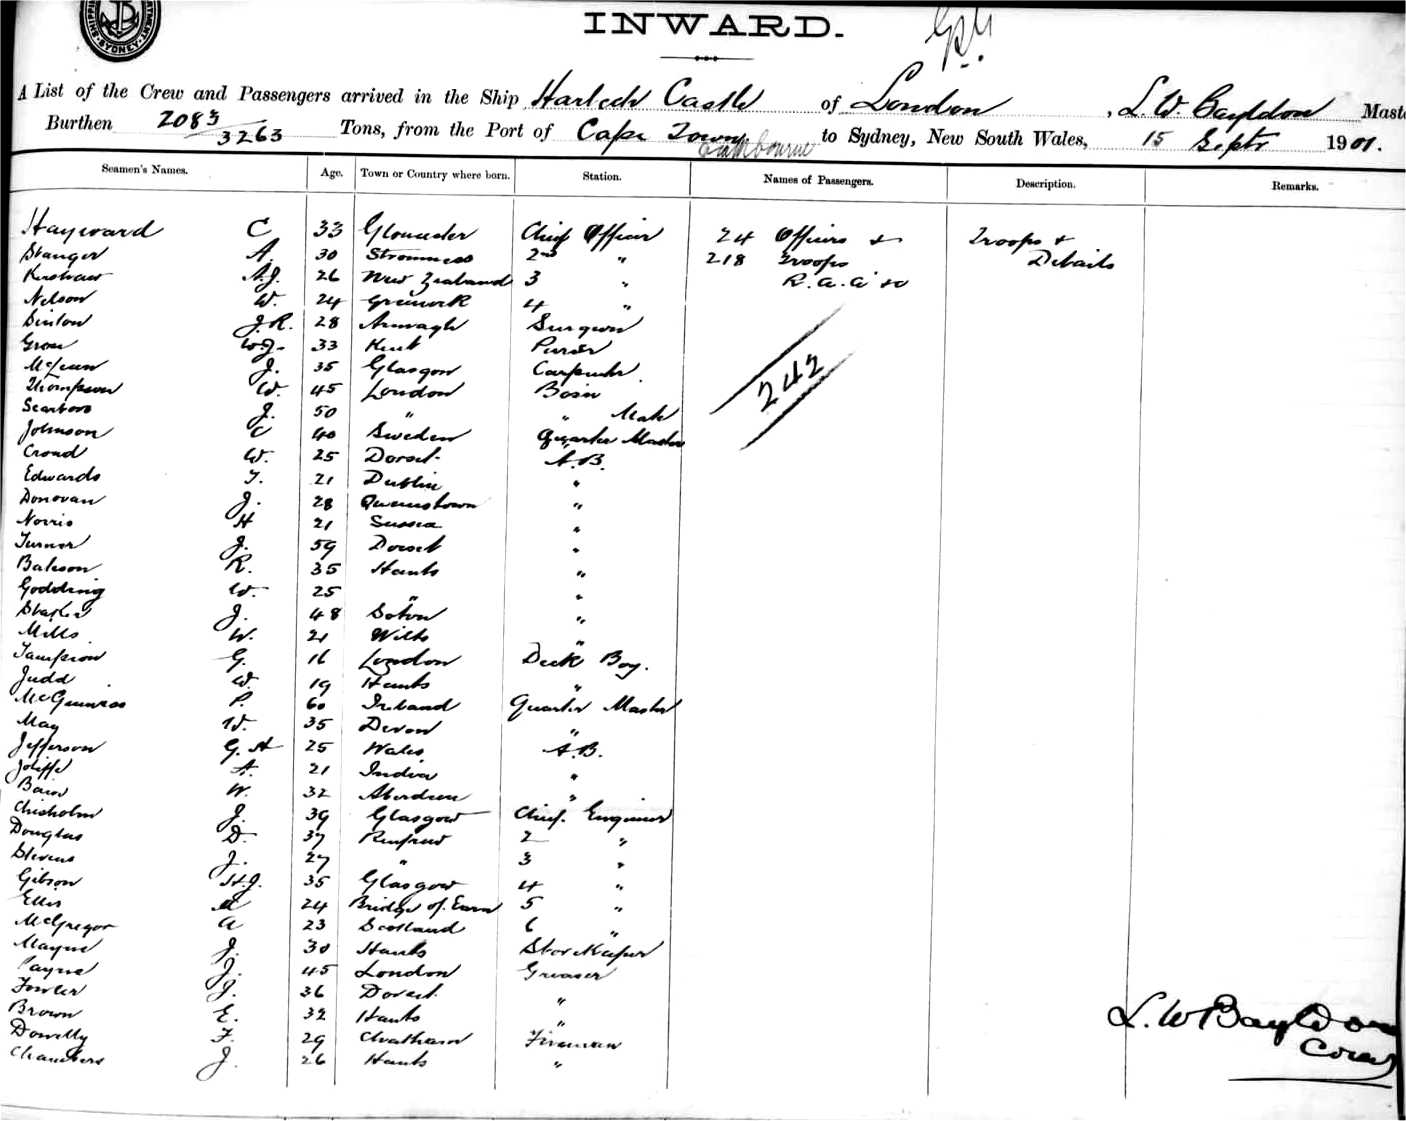 INWARD.
A List of the Crew and Passengers arrived in the Ship Harlech Castle of London, L. W. Bayldon Maste
Burthen 2083 / 3263 Tons, from the Port of Cape Town to Sydney, New South Wales, 15 Septr 1901.
Melbourne
Seamen's Names. Age. Town or Country where born. Station. Names of Passengers. Description. Remarks.
Hayward C 33 Gloucester Chief Officer 24 Officers & Troops &
Stanger A. 30 Stromness 2nd " 218 Troops Details
Kershaw A.J. 26 New Zealand 3 " R.A.A. &c
Nelson W. 24 Greenock 4 "
Sinton J.R. 28 Armagh Surgeon
W.J. 33 Kent Purser
McLean J. 35 Glasgow Carpenter 242
Thompson W. 45 London Bosn
Scarboro J. 50 " " Mate
Johnson C 40 Sweden Quarter Master
W. 25 Dorset A.B.
Edwards T. 21 Dublin "
Donovan J. 28 Queenstown "
Norris H 21 Sussex "
Turner J. 59 Dorset "
Bateson R. 35 Hants "
Godding W. 25 " "
J. 48 Soton "
Mills W. 21 Wilts "
G. 16 London Deck Boy.
Judd W. 19 Hants "
McGuinness P. 60 Ireland Quarter Master
May W. 35 Devon "
Jefferson G. H 25 Wales A.B.
Joliffe A. 21 India "
W. 32 Aberdeen "
Chisholm J. 39 Glasgow Chief Engineer
Douglas D. 37 Renfrew 2 "
Stevens J. 27 " 3 "
Gibson H.J. 35 Glasgow 4 "
Ellis M 24 Bridge of Earn 5 "
McGregor A 23 Scotland 6 "
Mayne J. 30 Hants Storekeeper
Payne J. 45 London Greaser
Fowler J. 36 Dorset "
Brown E. 32 Hants "
Donelly F. 29 Chatham Fireman
Chambers J. 26 Hants "
L. W Bayldon